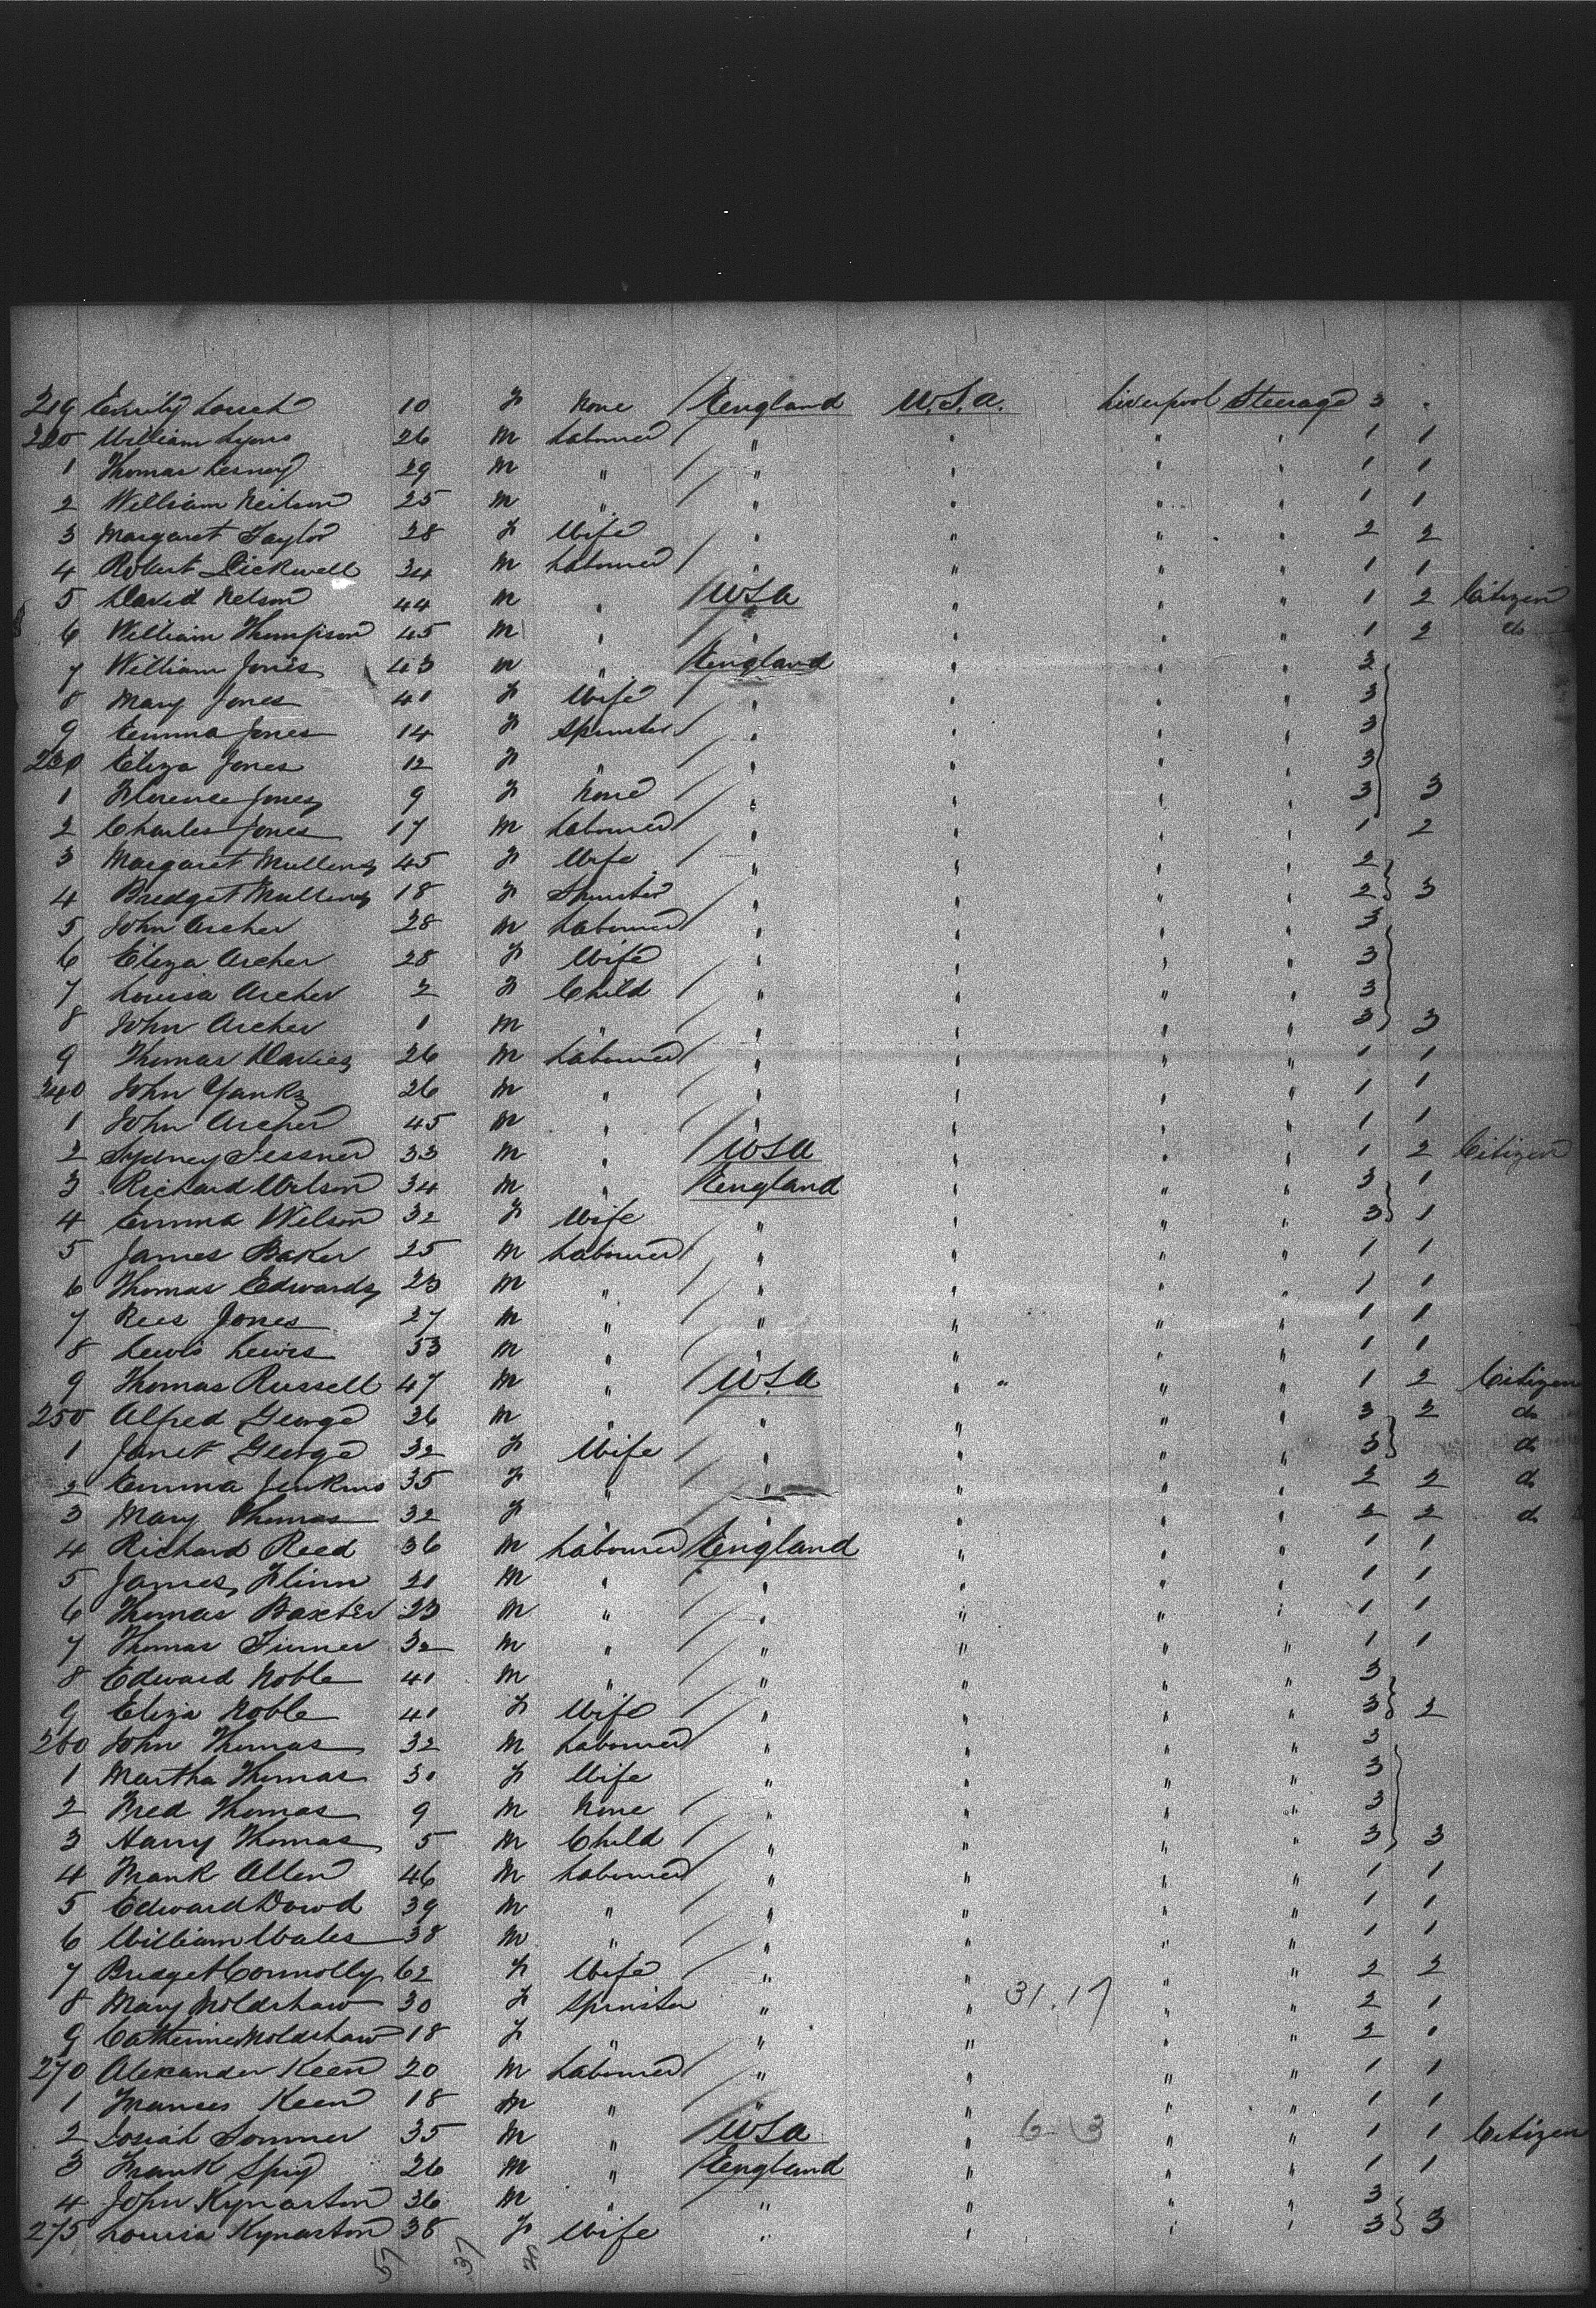 219 Emily Couch 10 F None / England U.S.A. Liverpool Steerage 3
220 William Lyons 26 M Labourer / " " " " 1 1
1 Thomas 29 M " / " " " " 1 1
2 William Neilson 25 M " / " " " " 1 1
3 Margaret Taylor 28 F Wife / " " " " 2 2
4 Robert Dickwell 34 M Labourer / " " " " 1 1
5 David Nelson 44 M " / USA " " " 1 2 Citizen
6 William Thompson 45 M " / " " " " 1 2 do
7 William Jones 43 M " / England " " " 3
8 Mary Jones 41 F Wife / " " " " 3
9 Emma Jones 14 F Spinster / " " " " 3
230 Eliza Jones 12 F " / " " " " 3
1 Florence Jones 9 F None / " " " " 3 3
2 Charles Jones 17 M Labourer / " " " " 1 2
3 Margaret Mullens 45 F Wife / " " " " 2
4 Bridget Mullens 18 F Spinster / " " " " 2 3
5 John Archer 28 M Labourer / " " " " 3
6 Eliza Archer 28 F Wife / " " " " 3
7 Louisa Archer 2 F Child / " " " " 3
8 John Archer 1 M " / " " " " 3 3
9 Thomas Davies 26 M Labourer / " " " " 1 1
240 John Yanks 26 M " / " " " " 1 1
1 John Archer 45 M " / " " " " 1 1
2 Sydney Jessner 33 M " / USA " " " 1 2 Citizen
3 Richard Wilson 34 M " / England " " " 3 1
4 Emma Wilson 32 F Wife / " " " " 3 1
5 James Baker 25 M Labourer / " " " " 1 1
6 Thomas Edwards 23 M " / " " " " 1 1
7 Rees Jones 27 M " / " " " " 1 1
8 Lewis Lewis 53 M " / " " " " 1 1
9 Thomas Russell 47 M " / USA " " " 1 2 Citizen
250 Alfred George 36 M " / " " " " 3 2 do
1 Janet George 32 F Wife / " " " " 3 do
2 Emma Jenkins 35 F " / " " " " 2 2 do
3 Mary Thomas 32 F " / " " " " 2 2 do
4 Richard Reed 36 M Labourer / England " " " 1 1
5 James Flinn 21 M " / " " " " 1 1
6 Thomas Baxter 23 M " / " " " " 1 1
7 Thomas Turner 32 M " / " " " " 1 1
8 Edward Noble 41 M " / " " " " 3
9 Eliza Noble 41 F Wife / " " " " 3 2
260 John Thomas 32 M Labourer / " " " " 3
1 Martha Thomas 30 F Wife / " " " " 3
2 Fred Thomas 9 M None / " " " " 3
3 Harry Thomas 5 M Child / " " " " 3 3
4 Frank Allen 46 M Labourer / " " " " 1 1
5 Edward Dowd 39 M " / " " " " 1 1
6 William Wales 38 M " / " " " " 1 1
7 Bridget Connolly 62 F Wife / " " " " 2 2
8 Mary Moldshaw 30 F Spinster / " " 31.17 " " 2 1
9 Catherine Moldshaw 18 F " / " " " " 2 1
270 Alexander Keen 20 M Labourer / " " " " 1 1
1 Frances Keen 18 M " / " " " " 1 1
2 Josiah Sommer 35 M " / USA " 6 3 " " 1 1 Citizen
3 Frank Spry 26 M " / England " " " 1 1
4 John Kynaston 36 M " / " " " " 3
275 Louisa Kynaston 38 F Wife " " " " 3 3
57 37